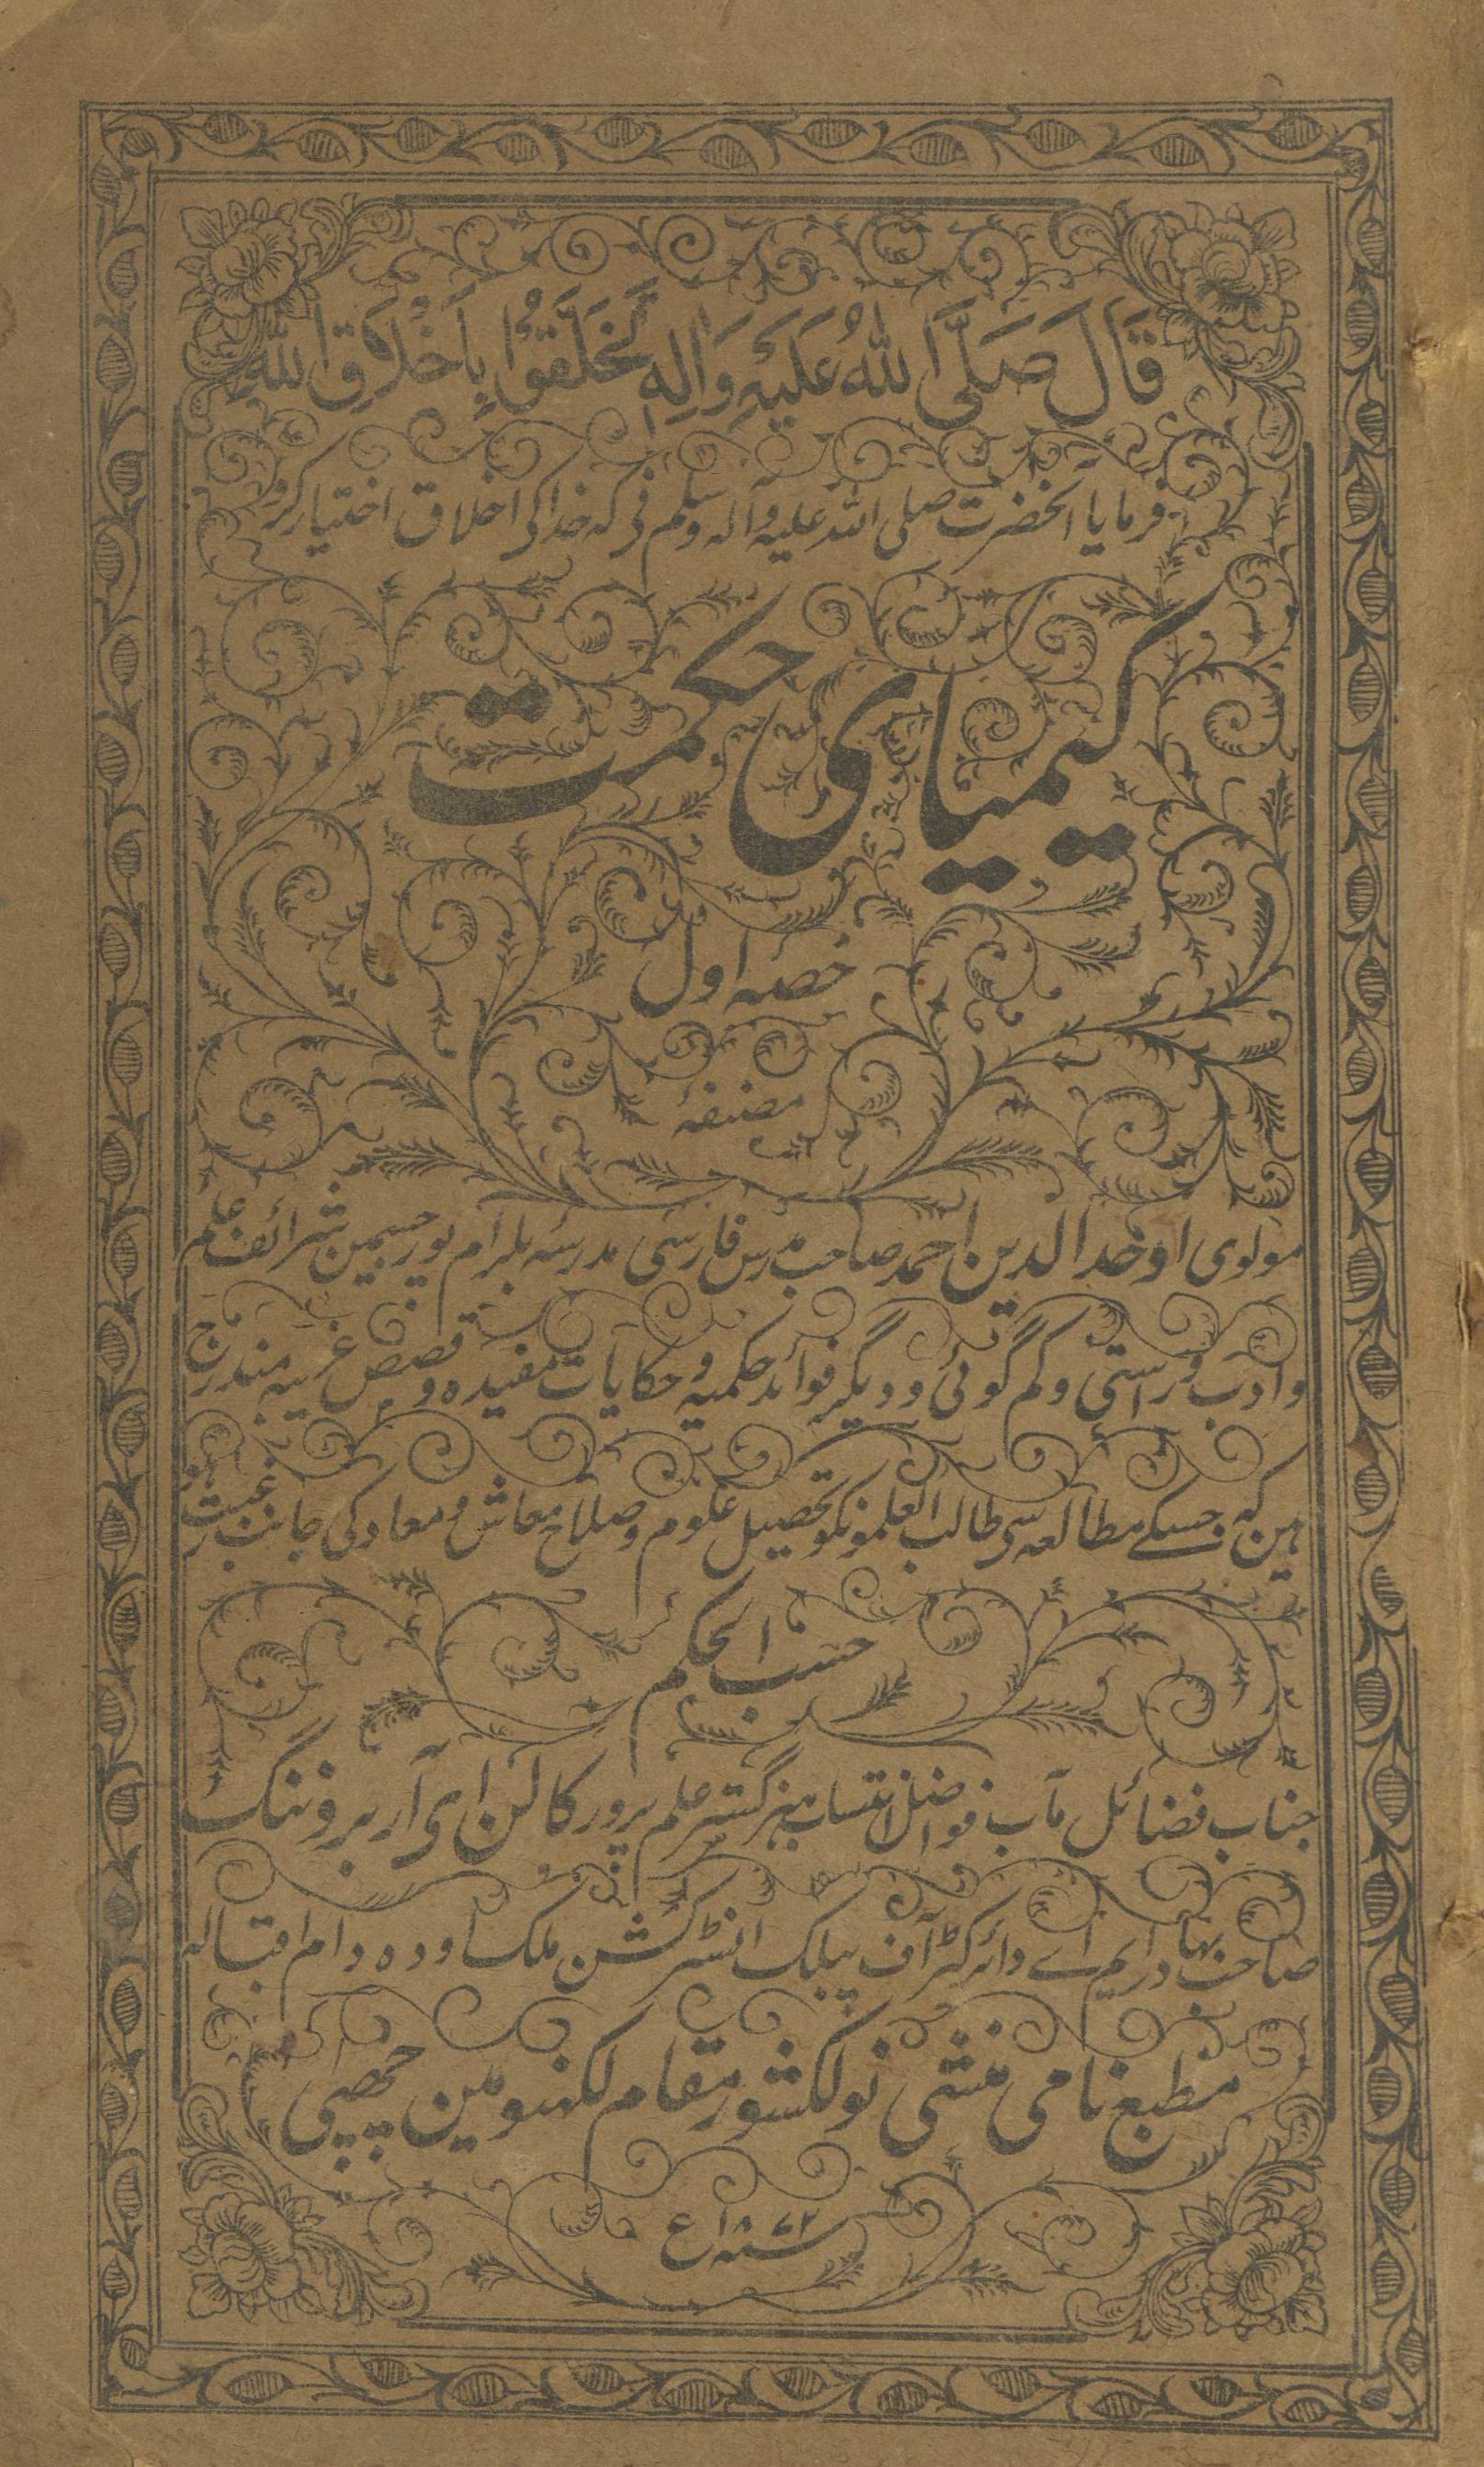 قَالَ صَلَّی اللهُ عَلَیْهِ وَاٰلِهٖ تَخَلَّقُوْا بِاَخْلَاقِ اللهِ
فرمایا آنحضرت صلی اللہ علیہ وآلہ وسلم نی کہ خدا کی اخلاق اختیار کرو
کیمیای حکمت
حصہ اول
مصنفہٴ
مولوی اوحد الدین احمد صاحب مدرس فارسی مدرسہ بلرام پور جسمین شرائف علم
وادب و راستی وکم گوئی و دیگر فوائد حکمیہ و حکایات مفیدہ و قصص غریبہ مندرج
ہین کہ جسکے مطالعہ سی طالب العلمونکو تحصیل علوم وصلاح معاش و معاد کی جانب رغبت ہو
حسب الحکم
جناب فضائل مآب فواضل انتساب ہنر گستر علم پرور کالن ای آر برؤننگ
صاحب بہادر ایم اے دائرکٹر آف پبلک انسٹرکشن ملک اودہ دام اقبالہ
مطبع نامی منشی نولکشور مقام لکہنو مین چھپی
سنہ ۱۸۷۲ ع